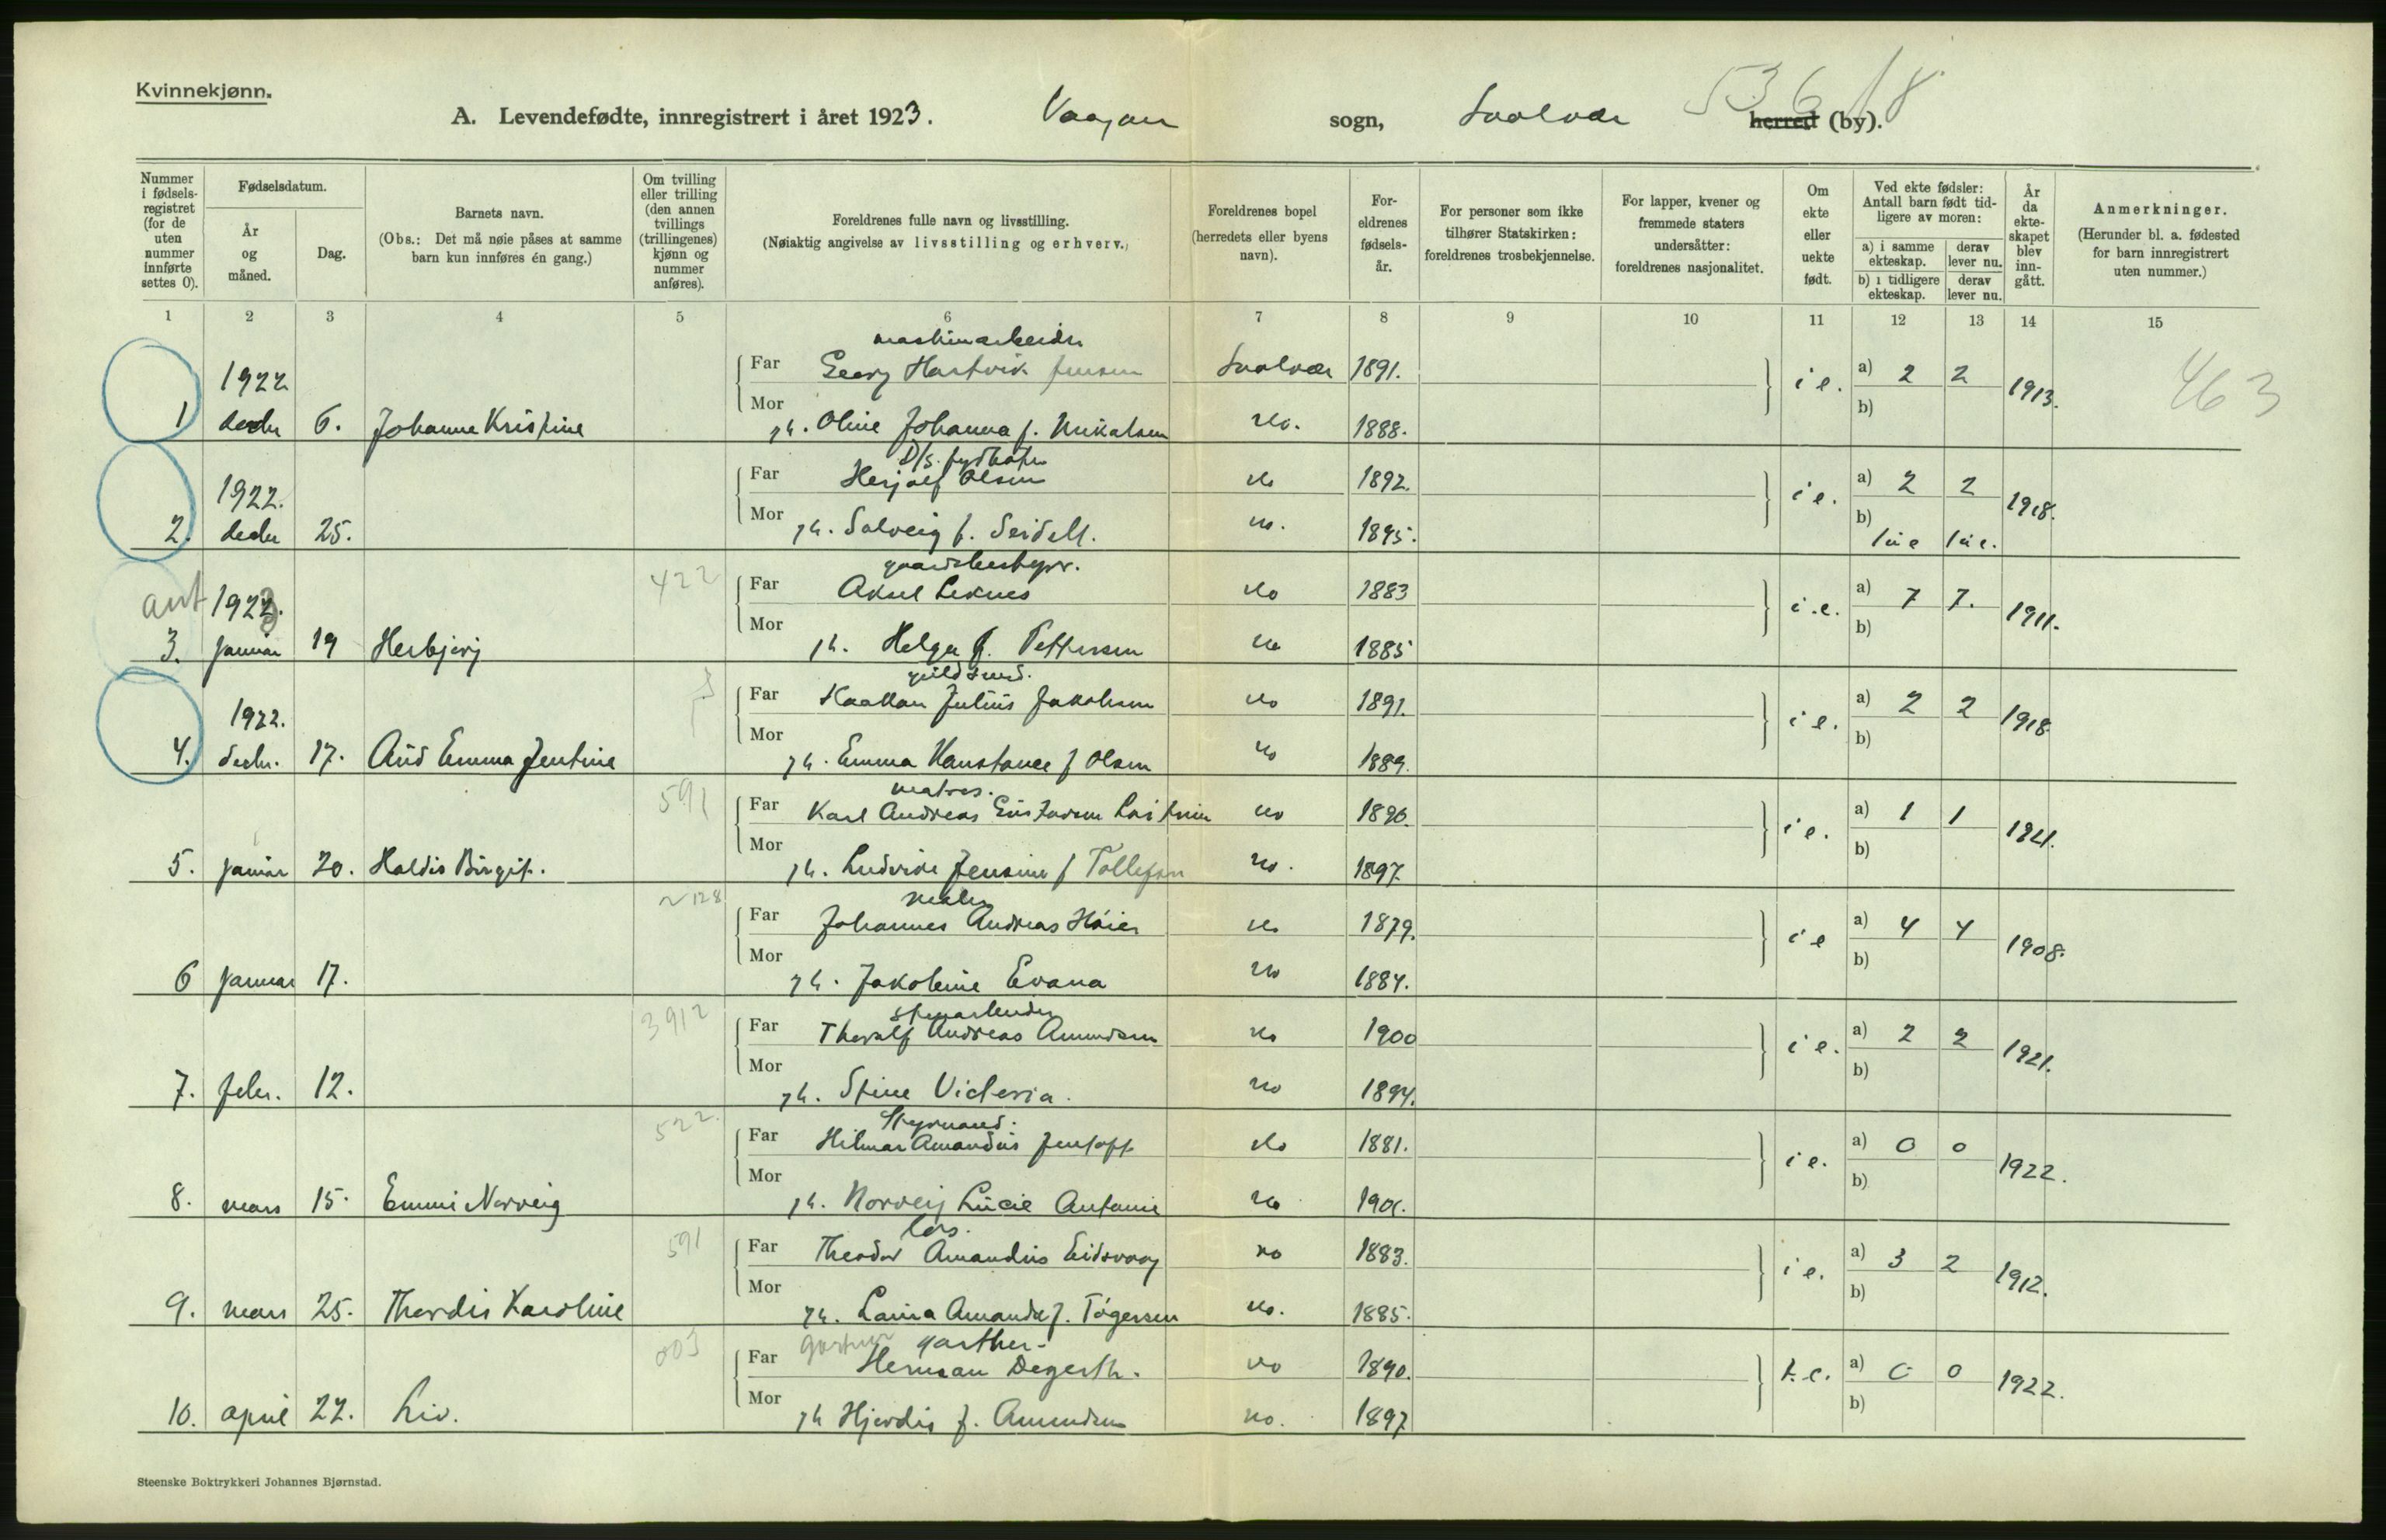 Kvinnekjønn.
A. Levendefødte, innregistrert i året 1923. Vaagan sogn, Svolvær herred (by). 536 18
Nummer i fødselsregistret (for de uten nummer innførte settes 0).
Fødselsdatum.
År og måned.
Dag.
Barnets navn.
(Obs.: Det må nøie påses at samme barn kun innføres én gang.)
Om tvilling eller trilling (den annen tvillings (trillingenes) kjønn og nummer anføres).
Foreldrenes fulle navn og livsstilling.
(Nøiaktig angivelse av livsstilling og erhverv.)
Foreldrenes bopel (herredets eller byens navn).
Foreldrenes fødselsår.
For personer som ikke tilhører Statskirken: foreldrenes trosbekjennelse.
For lapper, kvener og fremmede staters undersåtter: foreldrenes nasjonalitet.
Om ekte eller uekte født.
Ved ekte fødsler: Antall barn født tidligere av moren:
a) i samme ekteskap.
derav lever nu.
b) i tidligere ekteskap.
derav lever nu.
År da ekteskapet blev inngått.
Anmerkninger.
(Herunder bl. a. fødested for barn innregistrert uten nummer.)
1 2 3 4 5 6 7 8 9 10 11 12 13 14 15
maskinarbeider
1922 Far Georg Hartvik Jensen Svolvær 1891. i e. a) 2 2 1913. 463
1 decbr 6. Johanne Kristine Mor h. Oline Johanna f. Mikalsen do. 1888. b)
D/s. fyrbøter
1922. Far Herjolf Olsen do 1892. i e. a) 2 2 1918.
2. decbr 25. Mor h. Solveig f. Seidell. do. 1895. b) 1 u e 1 u e.
gaardsbestyr.
ant 1923. 422 Far Aksel Leknes do 1883 i.e. a) 7 7. 1911.
3. januar 19 Herbjørg Mor h. Helga f. Pettersen do 1885 b)
guldsmed.
1922. Far Haakon Julius Jakobsen do 1891. i e. a) 2 2 1918
4. decbr. 17. Aud Emma Jentine Mor h. Emma Konstance f Olsen do 1889. b)
matros.
591 Far Karl Andreas Gustavsen do 1896. i e. a) 1 1 1921.
5. januar 20. Haldis Birgit. Mor h. Ludvikke Jensine f Tollefsen do. 1897 b)
maler
128 Far Johannes Andreas Høier do 1879. i e a) 4 4 1908.
6 januar 17. Mor h. Jakobine Evana do 1884. b)
stenarbeider
3912 Far Thoralf Andreas Amundsen do 1900 i e. a) 2 2 1921.
7. febr. 12. Mor h. Stine Victoria. do 1894. b)
Styrmand.
522. Far Hilmar Amandus Jentoft do 1881. i e. a) 0 0 1922.
8. mars 15. Emmi Norveig Mor h. Norveig Lucie Antonie do 1901. b)
los.
591 Far Theodor Amandus Eidsvaag do 1883. i e. a) 3 2 1912.
9. mars 25. Thordis Karoline Mor h. Laura Amanda f. Tøgersen do. 1885. b)
gartner gartner.
003 Far Herman Degerth. do 1890. i.e. a) 0 0 1922.
10. april 22. Liv. Mor h Hjørdis f. Amundsen do. 1897 b)
Steenske Boktrykkeri Johannes Bjørnstad.